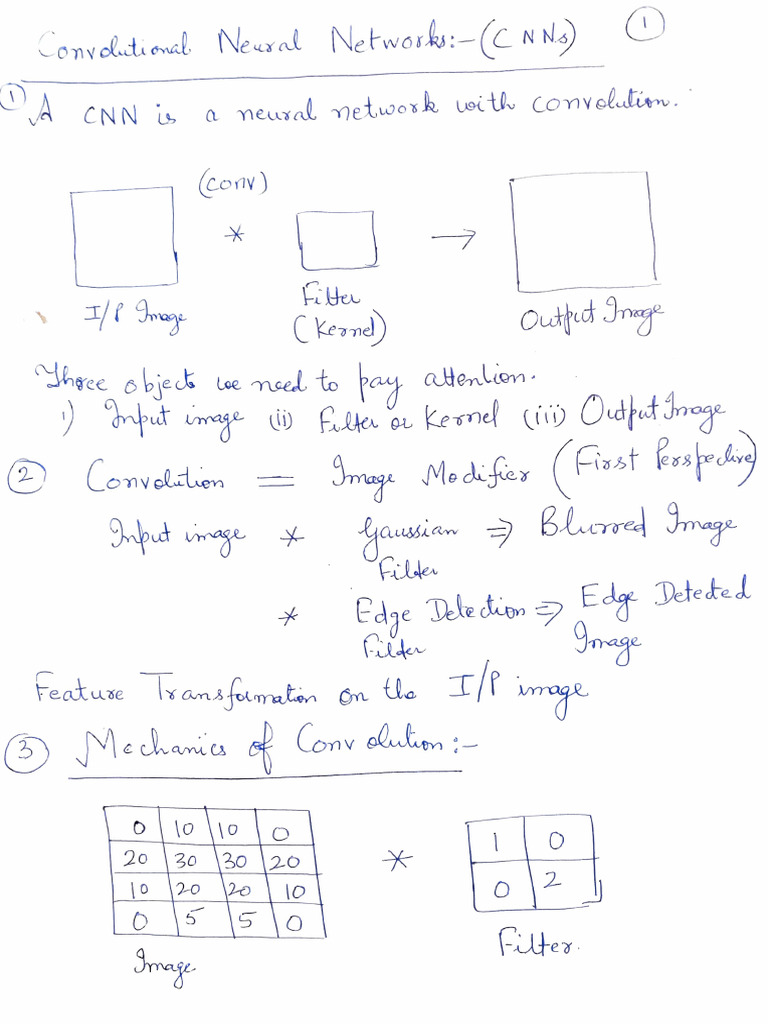 Convolutional Neural Networks:-(CNNs) 1
1 A CNN is a neural network with convolution.
(conv)
* →
I/P Image
Filter
(Kernel)
Output Image
Three object we need to pay attention.
i) Input image (ii) Filter or Kernel (iii) Output Image
2 Convolution = Image Modifier (First Perspective)
Input image * Gaussian Filter ⇒ Blurred Image
* Edge Detection Filter ⇒ Edge Detected Image
Feature Transformation on the I/P image
3 Mechanics of Convolution:-
0 10 10 0
20 30 30 20
10 20 20 10
0 5 5 0
Image
*
1 0
0 2
Filter.